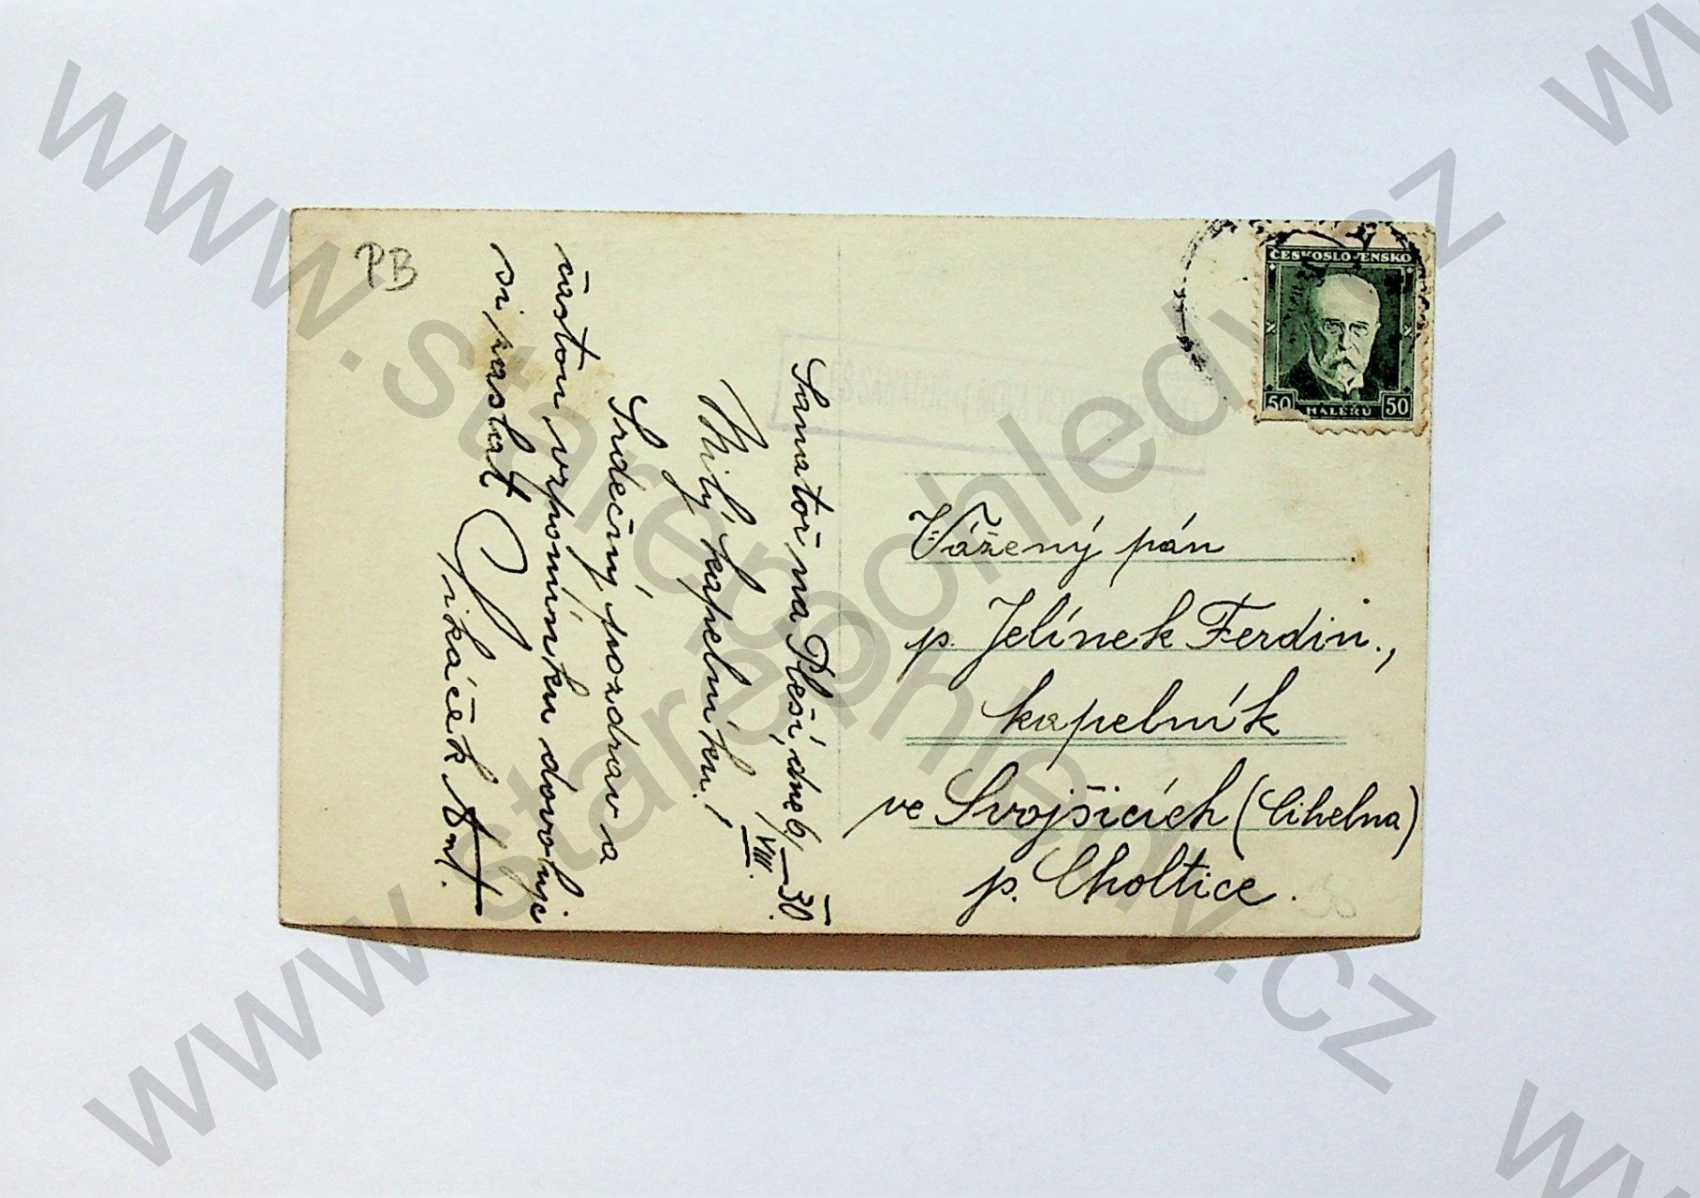 PB
Sanatoř na Pleši, dne 6/VIII.–30.
Milý kapelníku!
Srdečný pozdrav a
častou vzpomínku dovoluji
si zaslat
Ant.
ČESKOSLOVENSKO
50 HALÉŘŮ 50
Vážený pán
p. Jelínek Ferdin.,
kapelník
ve Svojšicích (Cihelna)
p. Choltice.
www.starepohledy.cz
www.starepohledy.cz